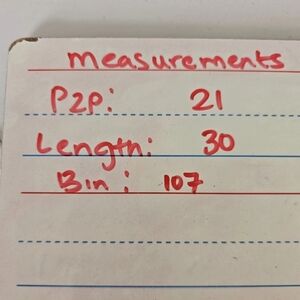 measurements
P2P: 21
Length: 30
Bin: 107